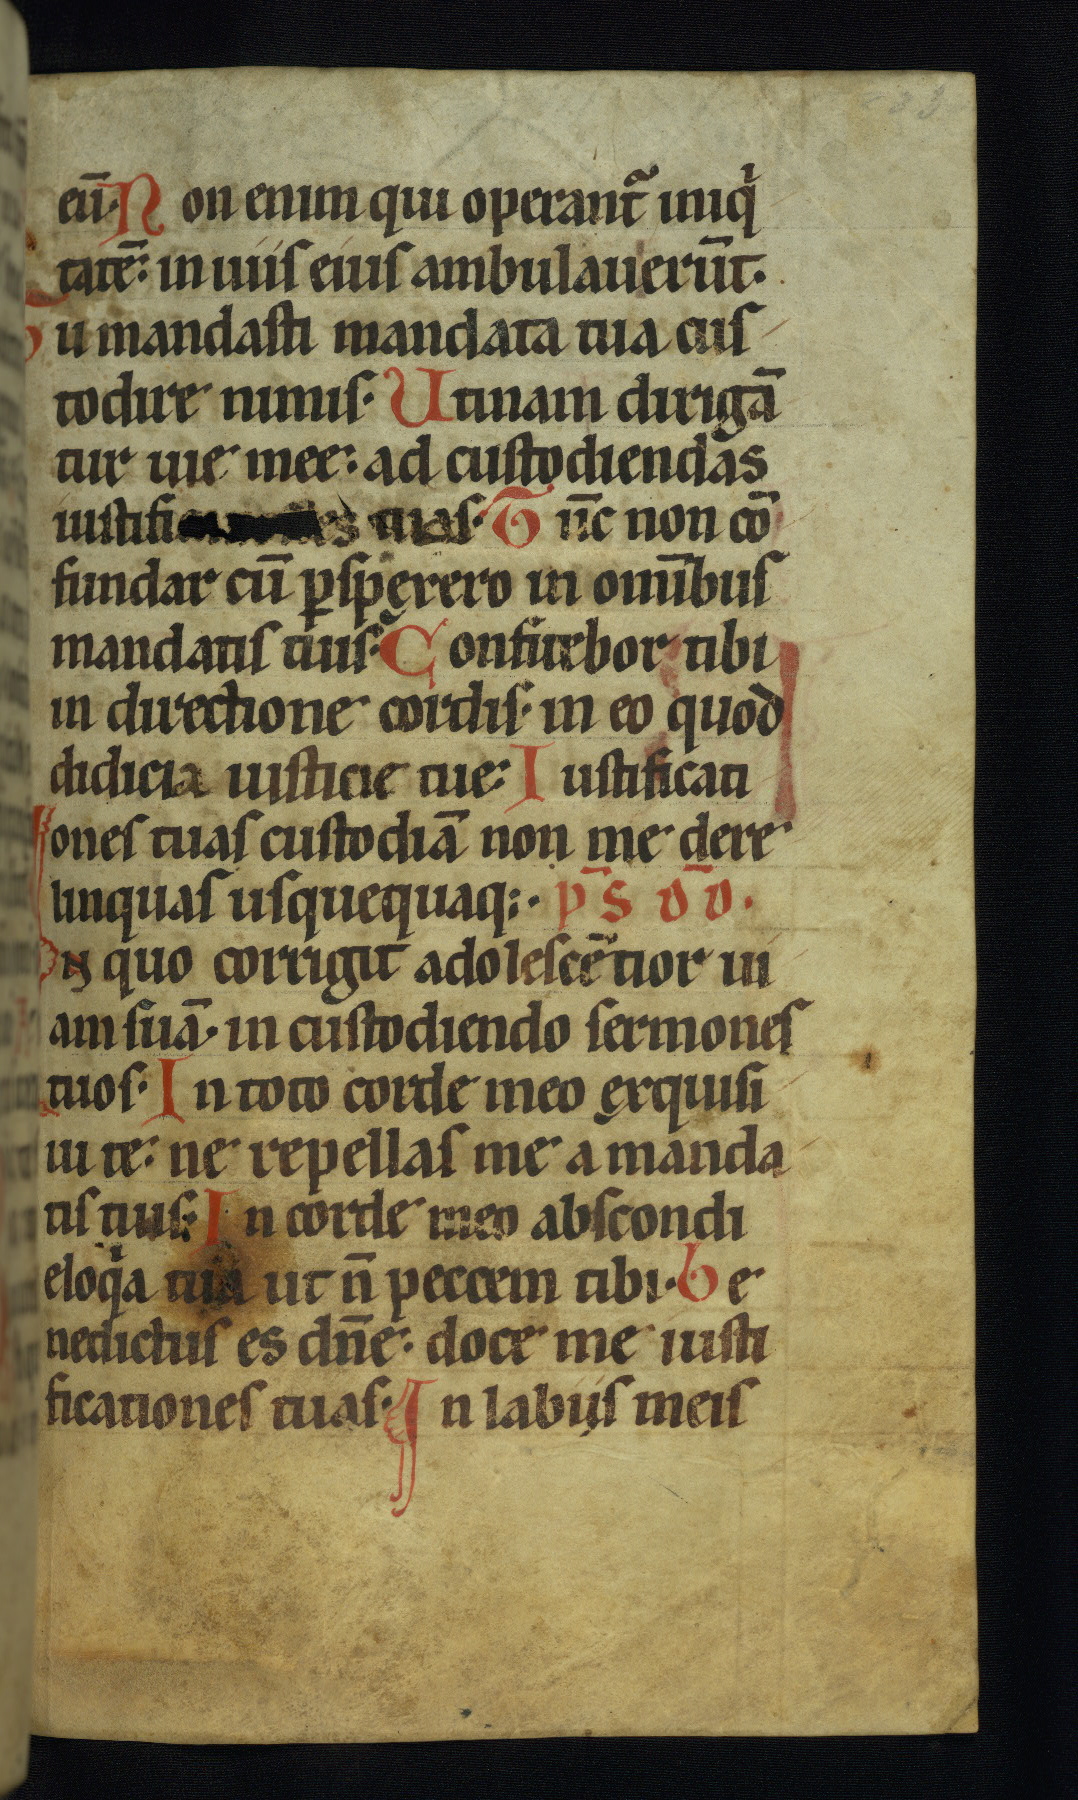 eū· Non enim qui operant᷑ iniqͥ
tatē: in uiis eius ambulauerūt·
Tu mandasti mandata tua cus
todire nimis· Utinam dirigā
tur uie mee: ad custodiendas
iustifi es tuas· Tūc non cō
fundar cū ꝑspexero in om̄ibus
mandatis tuis· Confitebor tibi
in directione cordis· in eo quod
didici iusticie tue: Iustificati
ones tuas custodiā non me dere
linquas usquequaq;· p̄s d̄d·
In quo corrigit adolescētior ui
am suā· in custodiendo sermones
tuos· In toto corde meo exquisi
ui te: ne repellas me a manda
tis tuis: In corde meo abscondi
eloqͥa tua ut n̄ peccem tibi· Be
nedictus es dn̄e: doce me iusti
ficationes tuas· In labiis meis